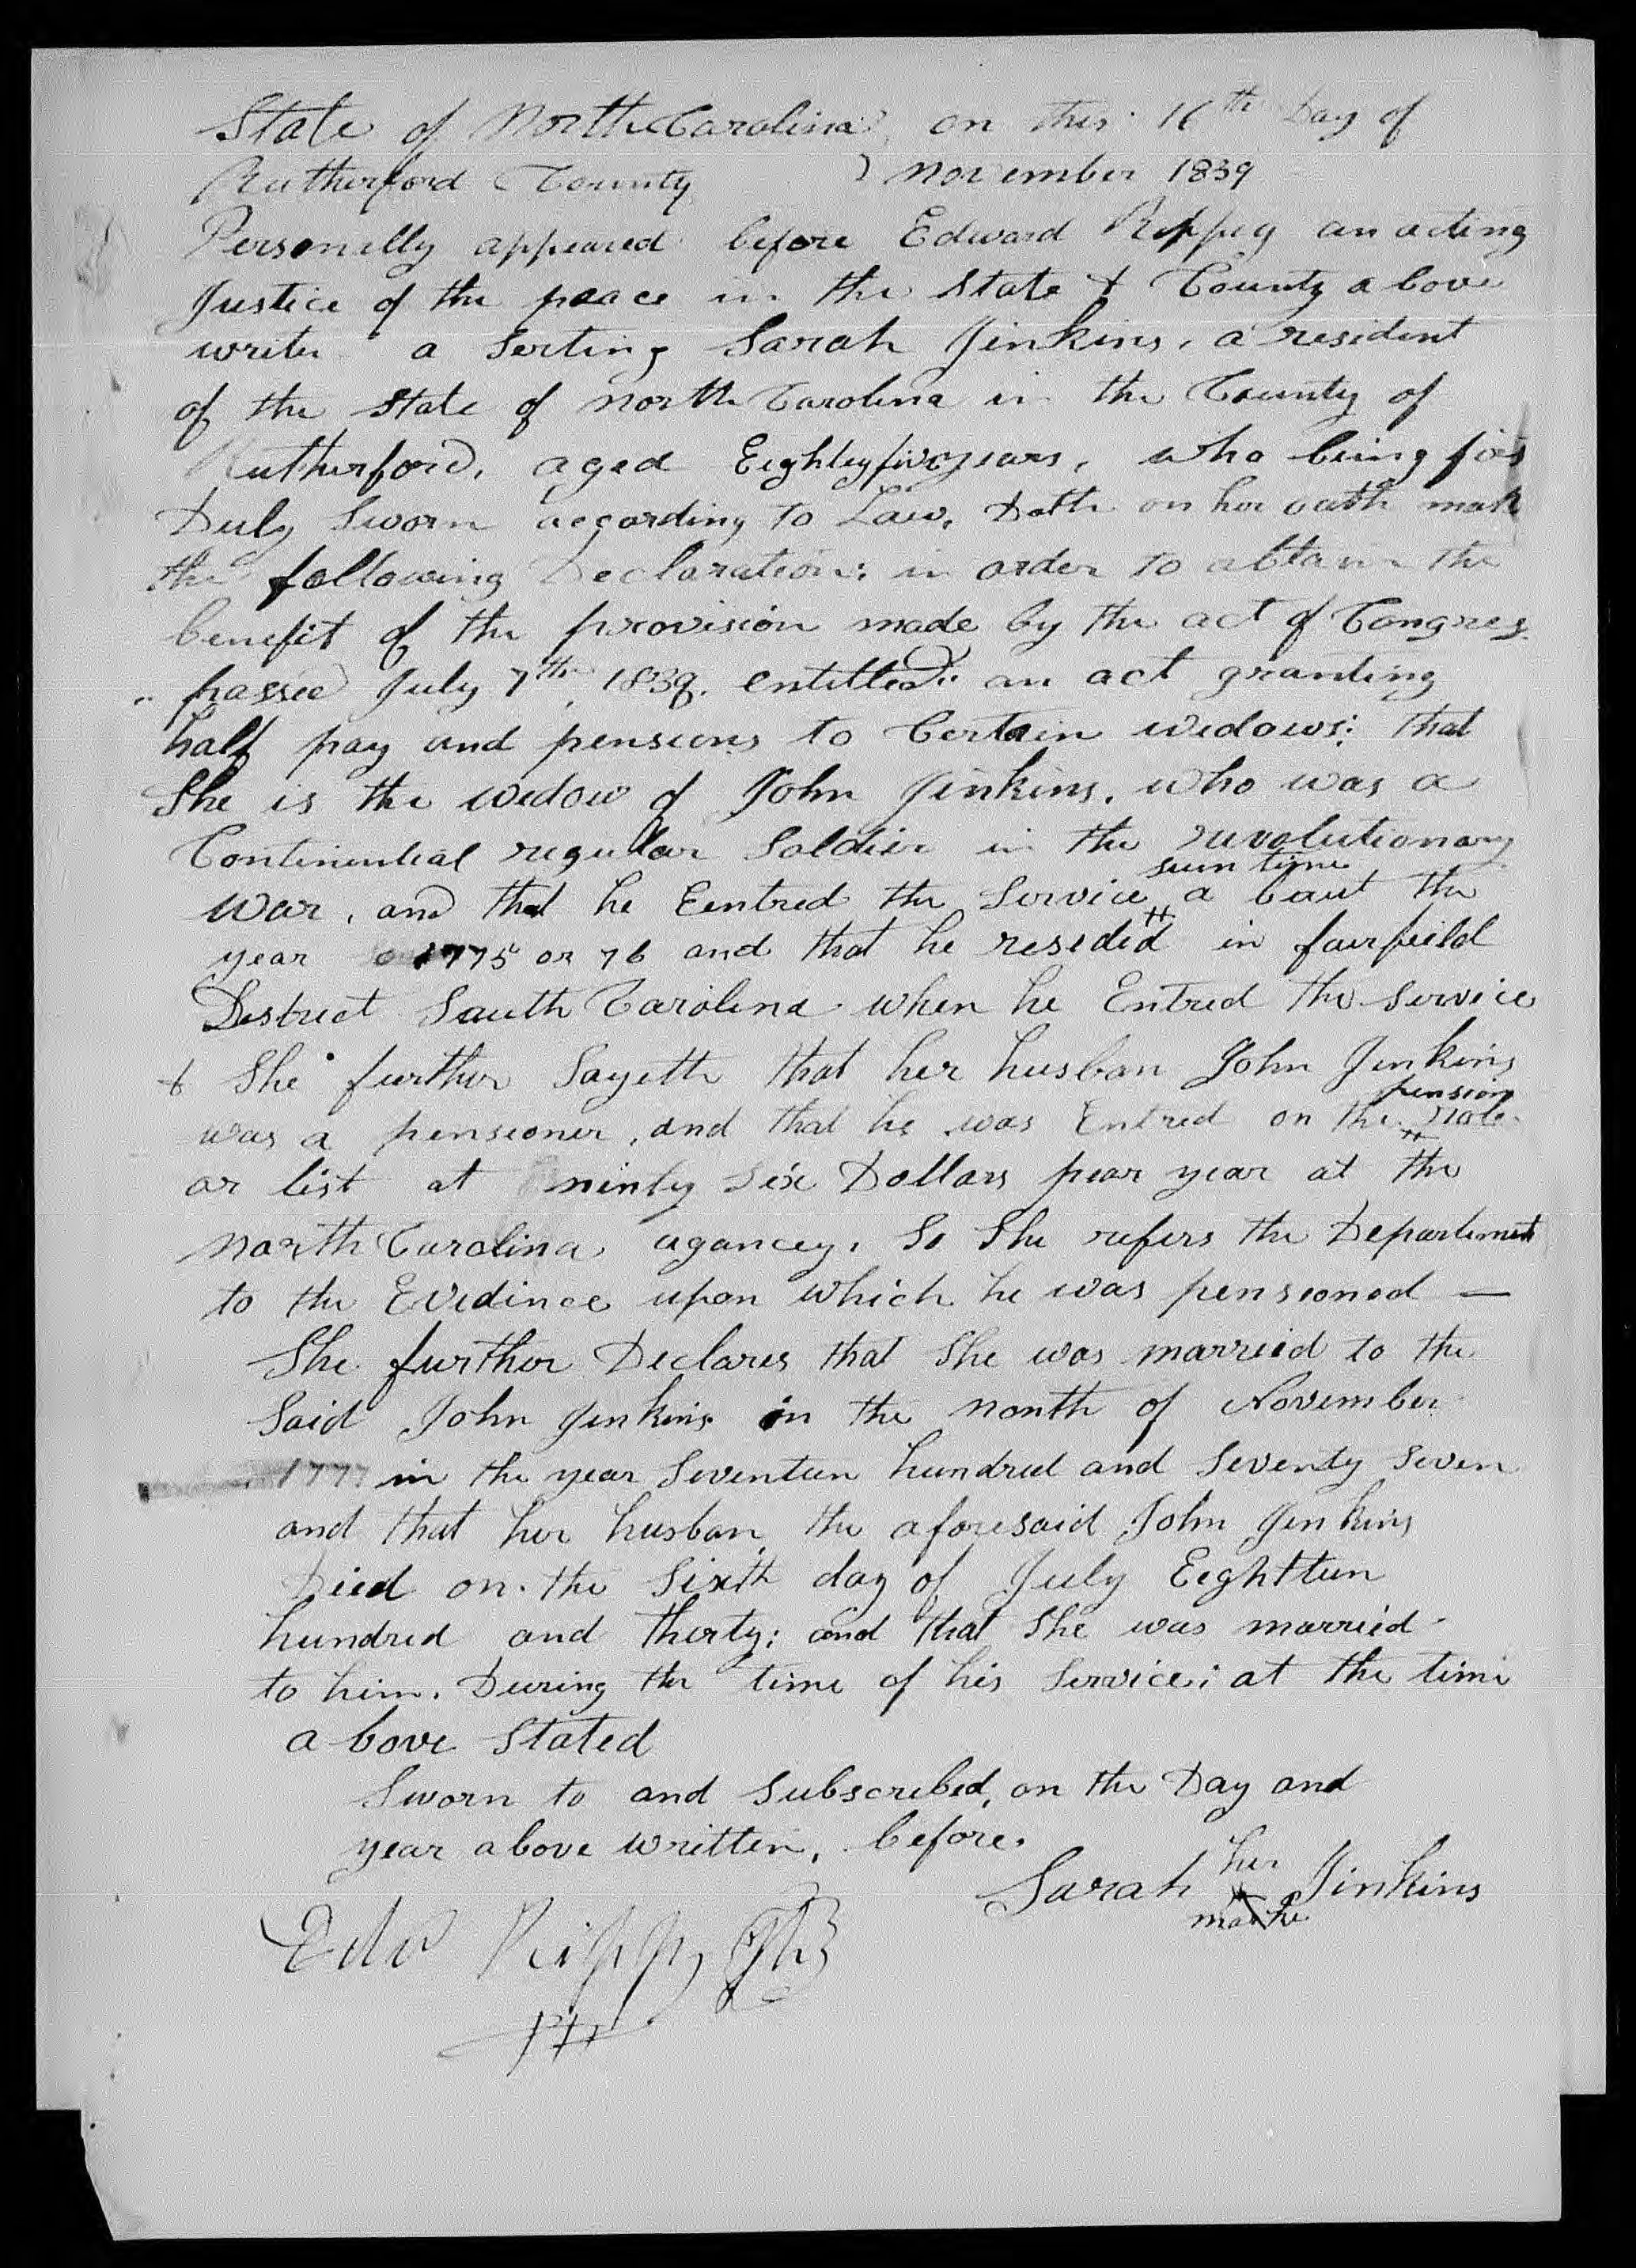 State of North Carolina } on this 16th Day of
Rutherford County } November 1839
Personally appeared before Edward Rippy an acting
Justice of the peace in the State & County a bove
writen a Serting Sarah Jinkins, a resident
of the State of North Carolina in the County of
Rutherford, aged Eightyfive years, who being firs
Duly Sworn according to Law, Doth on her oath mak
the following Declaration: in order to abtain the
benefit of the provision made by the act of Congress
passed July 7th 1838. entitled: an act granting
half pay and pensions to Certain widows: that
She is the widow of John Jinkins, who was a
Continential regular Soldier in the revolutionary
sum time
war, and that he Eentred the Service a bout the
year 1775 or 76 and that he resided in fairfeild
District South Carolina when he Entred the Service
& She further Sayeth that her husban John Jinkins
pension
was a pensioner, and that he was Entred on the role
or list at ninty Six Dollars pear year at the
North Carolina agancey, So She refers the Department
to the Evedince upon which he was pensioned —
She further Declares that She was married to the
Said John Jinkins in the month of November
1777 in the year Seventeen hundred and Seventy Seven
and that her husban the aforesaid John Jinkins
Died on the Sixth day of July Eightteen
hundred and therty: and that She was married
to him. During the time of his Service: at the time
a bove Stated
Sworn to and Subscribed, on the Day and
year above written, before.
her
Sarah X Jinkins
marke
Edw Rippy